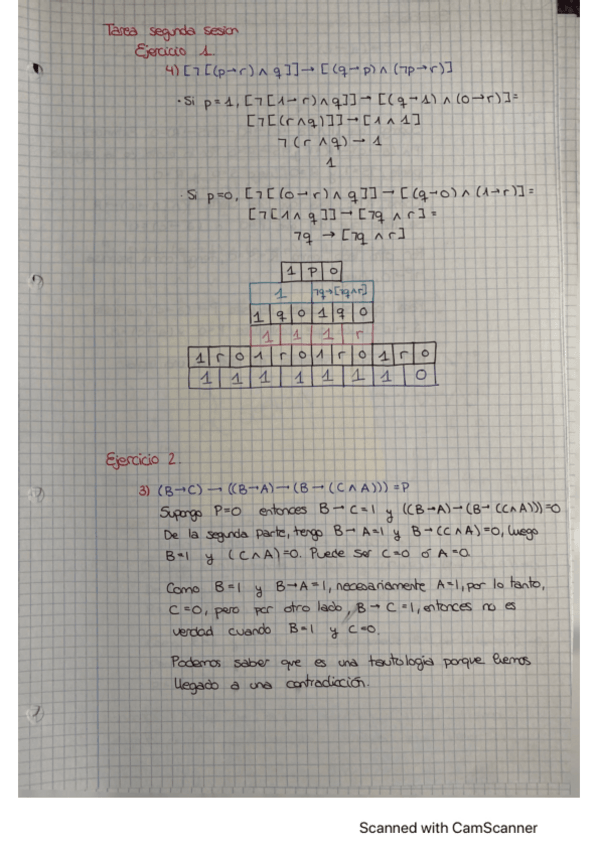 Tarea segunda sesion
Ejercicio 1
4) [¬[(p→r) ∧ q]] → [(q→p) ∧ (¬p→r)]
· Si p=1, [¬[1→r) ∧ q]] → [(q→1) ∧ (0→r)] =
[¬[(r∧q)]] → [1∧1]
¬(r∧q) → 1
1
· Si p=0, [¬[(0→r) ∧ q]] → [(q→0) ∧ (1→r)] =
[¬[1∧q]] → [¬q ∧ r] =
¬q → [¬q ∧ r]
1 p 0
1 ¬q→[¬q∧r]
1 q 0 1 q 0
1 1 1 r
1 r 0 1 r 0 1 r 0 1 r 0
1 1 1 1 1 1 1 0
Ejercicio 2.
3) (B→C) → ((B→A) → (B→(C∧A))) = P
Supongo P=0 entonces B→C=1 y ((B→A)→(B→(C∧A)))=0
De la segunda parte, tengo B→A=1 y B→(C∧A)=0, luego
B=1 y (C∧A)=0. Puede ser C=0 ó A=0.
Como B=1 y B→A=1, necesariamente A=1, por lo tanto,
C=0, pero por otro lado, B→C=1, entonces no es
verdad cuando B=1 y C=0.
Podemos saber que es una tautologia porque hemos
llegado a una contradicción.
Scanned with CamScanner